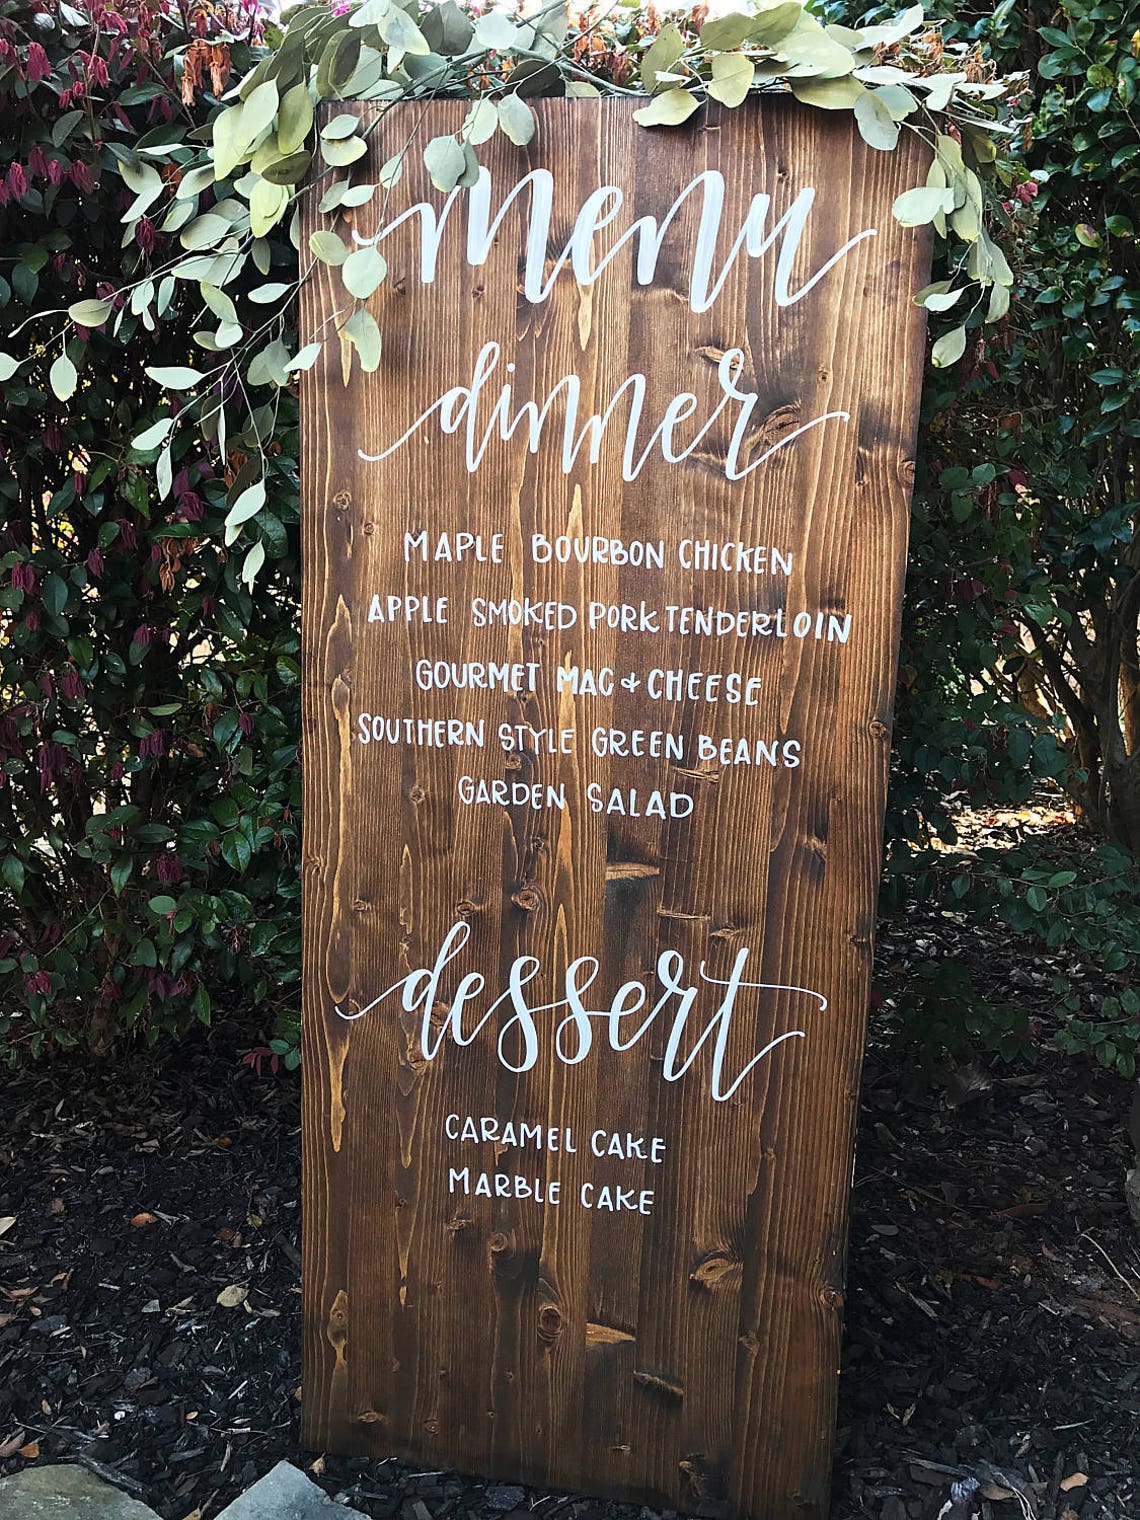 menu
dinner
MAPLE BOURBON CHICKEN
APPLE SMOKED PORK TENDERLOIN
GOURMET MAC + CHEESE
SOUTHERN STYLE GREEN BEANS
GARDEN SALAD
dessert
CARAMEL CAKE
MARBLE CAKE